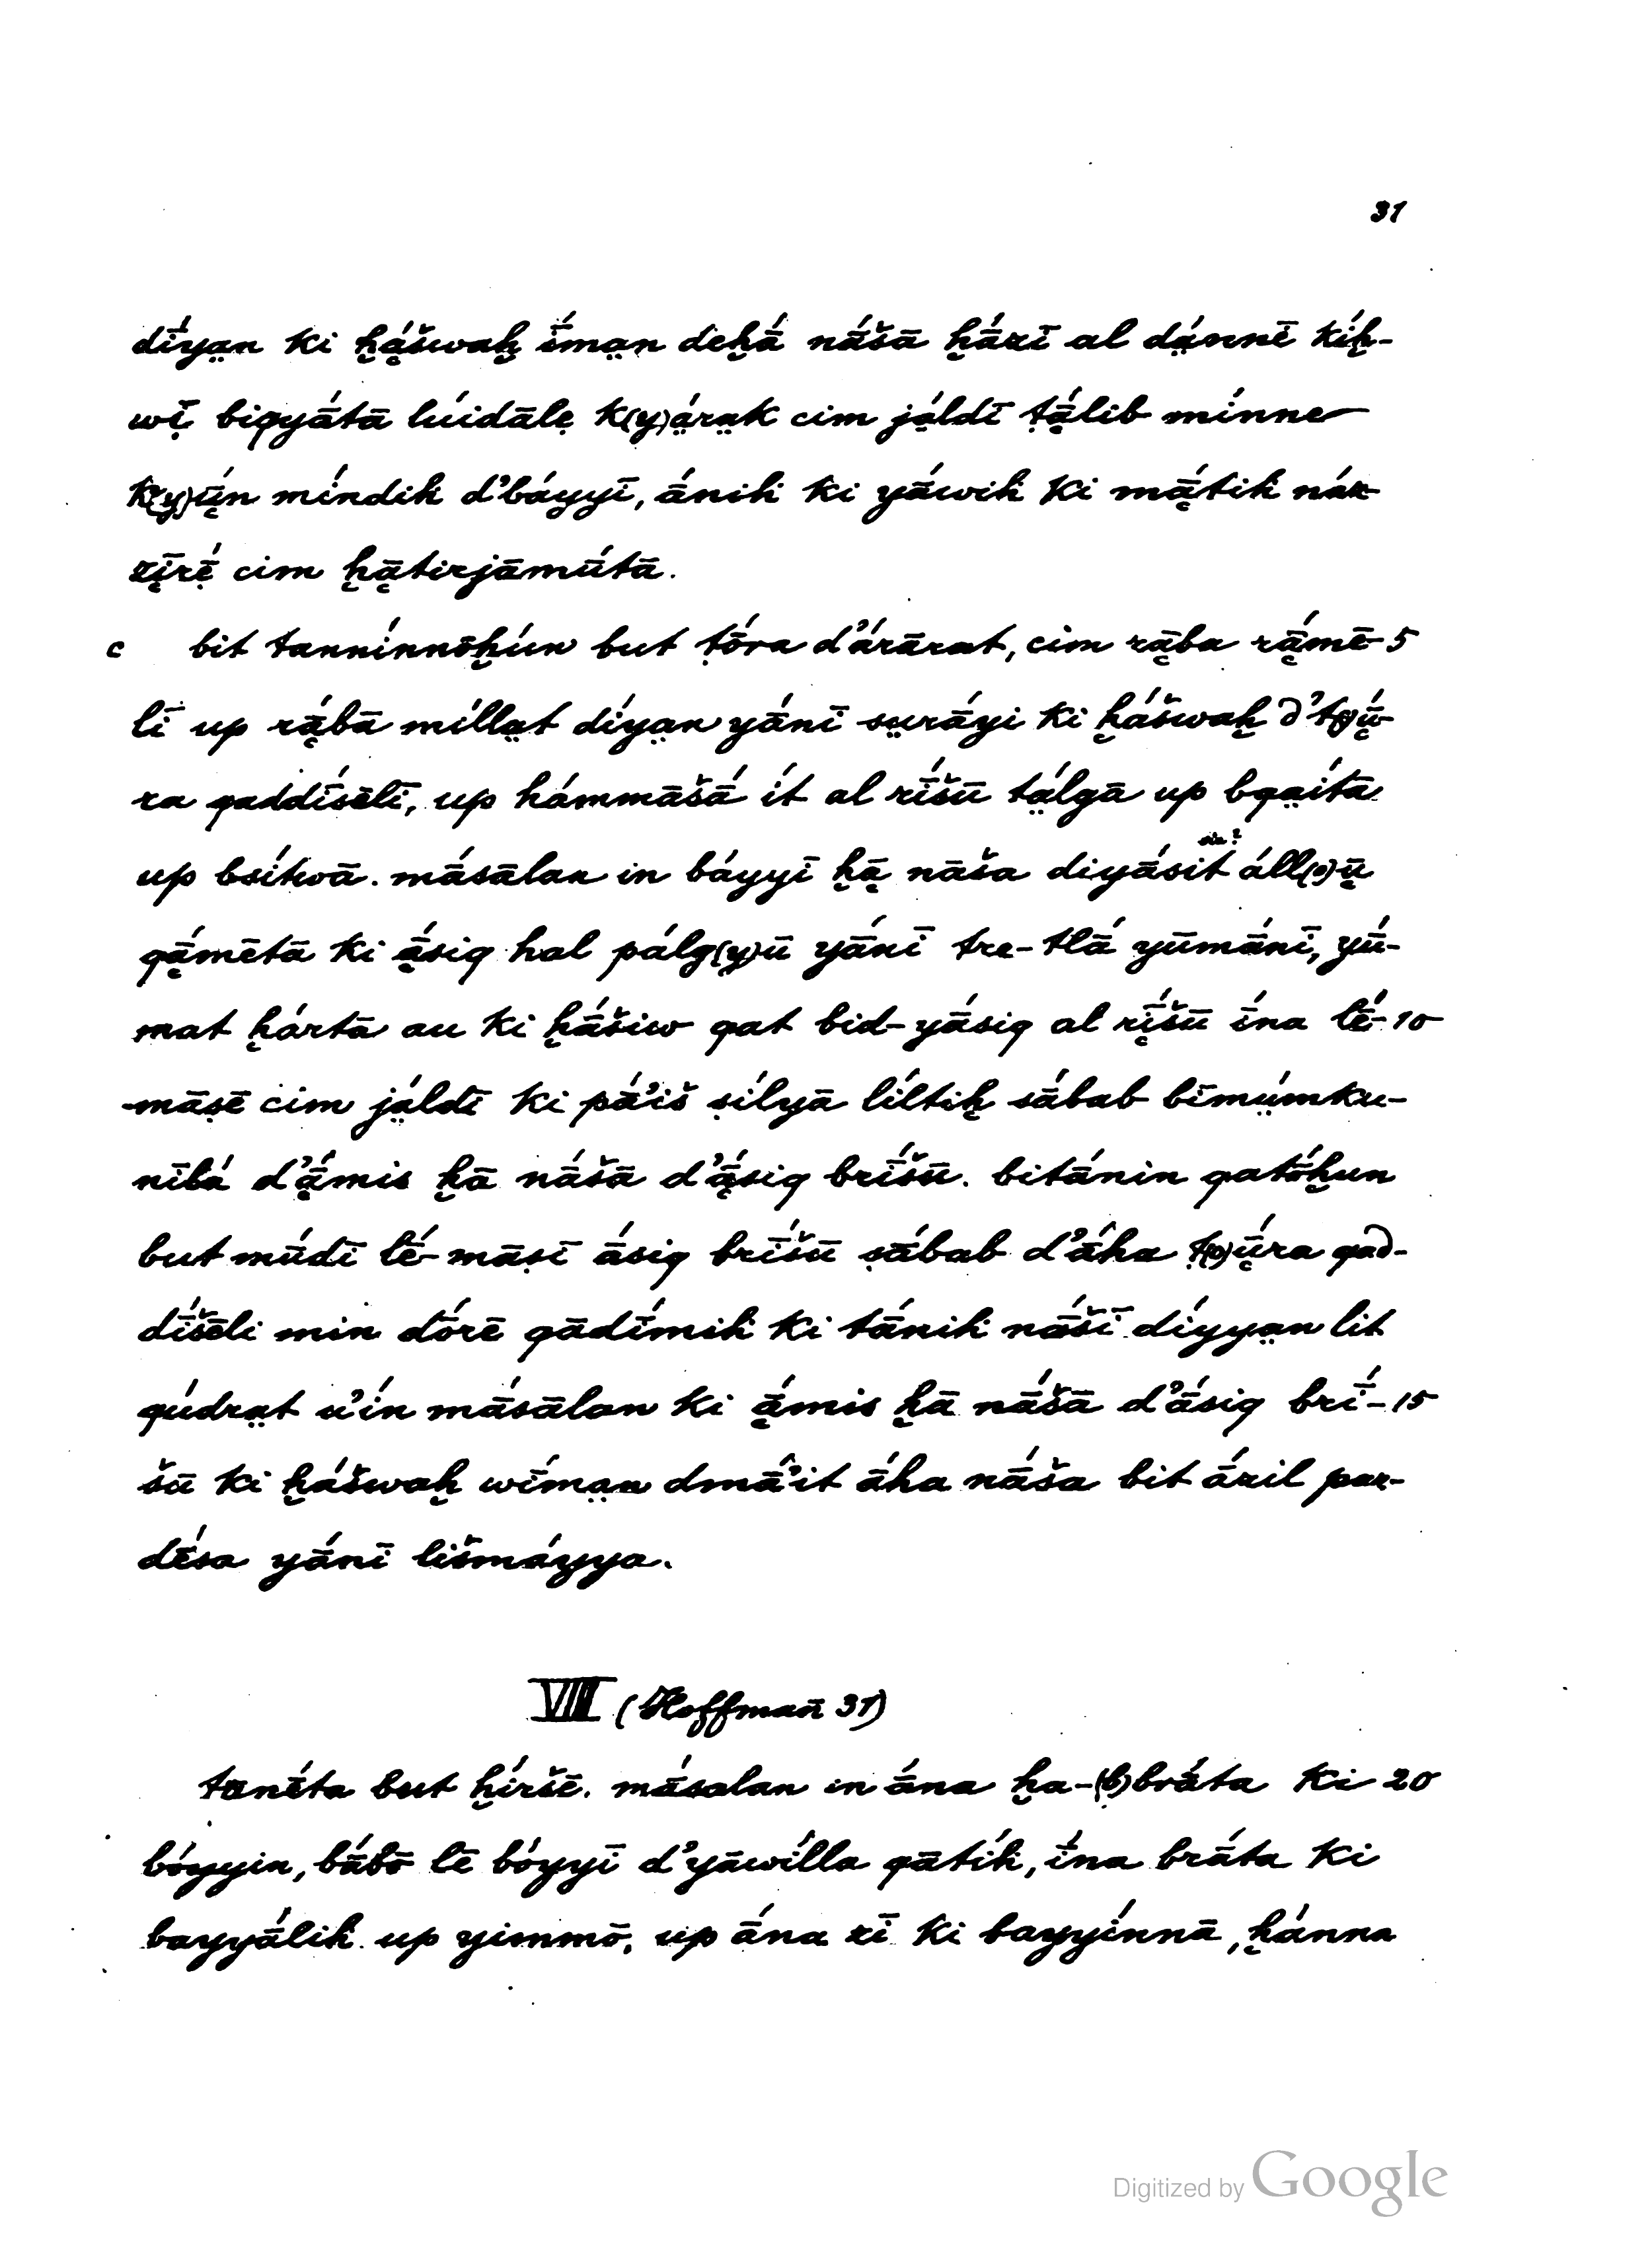 31
dī́yạn ki ḫą́šwaḫ ī́mạn deḫā́ nā́šā ḫā́zī al dạ́nnē kíḫ-
wị̄ biqyā́tā lúidālẹ k(y)ạ́rạk cim jạ́ldī ṭą̄́lib mínne
k(y)ų̄́n míndih d'báyyī, ā́nih ki yā́wih ki mą̄́tih náz
zį̄rẹ̄́ cim ḫą̄tirjāmū́tā.
c bit tannínnōḫún but ṭṓra d'árārat, cim rą̄́ba rą̄́mē- 5
lī up rą̄́bā míllạt díyạn yā́nī sụrā́yi ki ḫā́šwaḫ d'ṭ(o)ų̄́-
ra qaddī́šēlī, up hámmāšā́ ít al rī́šū tạ́lgā up bqạítā
up bsítwā. mā́sālan in báyyī ḫą̄ nāša diyā́sit áll(o)ų̄
qą̄́mētā ki ą̄́siq hal pálg(y)ū yā́nī tre-tlā́ yūmā́nī, yū́-
mat ḫártā au ki ḫā́šiw qat bid-yā́siq al rį̄́šū ī́na lḗ- 10
-māṣē cim jạ́ldī ki pā́'iš ṣílyā líltiḫ sā́bab bīmụ́mku-
nīlá d'ą̄́mis ḫā nā́šā d'ą̄́siq brī́šū. bitā́nin qatṓḫun
but mū́dī lḗ-māṣī ā́siq brī́šū ṣā́bab d'ā́ha ṭ(o)ų̄́ra qad-
dī́šēli min dṓrē qādī́mih ki tā́nih nā́šī díyyạn lit
qúdrạt u'ín mā́sālan ki ą̄́mis ḫā nā́šā d'ā́siq brī́- 15
šū ki ḫášwaḫ wī́mạn dmā́'it ā́ha nā́ša bit ā́zil par-
dḗsa yā́nī lišmáyya.
VIII (Hoffman̄ 31)
tanḗta but ḫíršē. mā́salan in ā́na ḫa-(b)brā́ta ki 20
bóyyin, bā́bō lē bóyyī d'yāwílla qātíh, ī́na brā́ta ki
bayyā́lih up yimmō, up ā́na zī ki bayyínnā, ḫánna
Digitized by Google